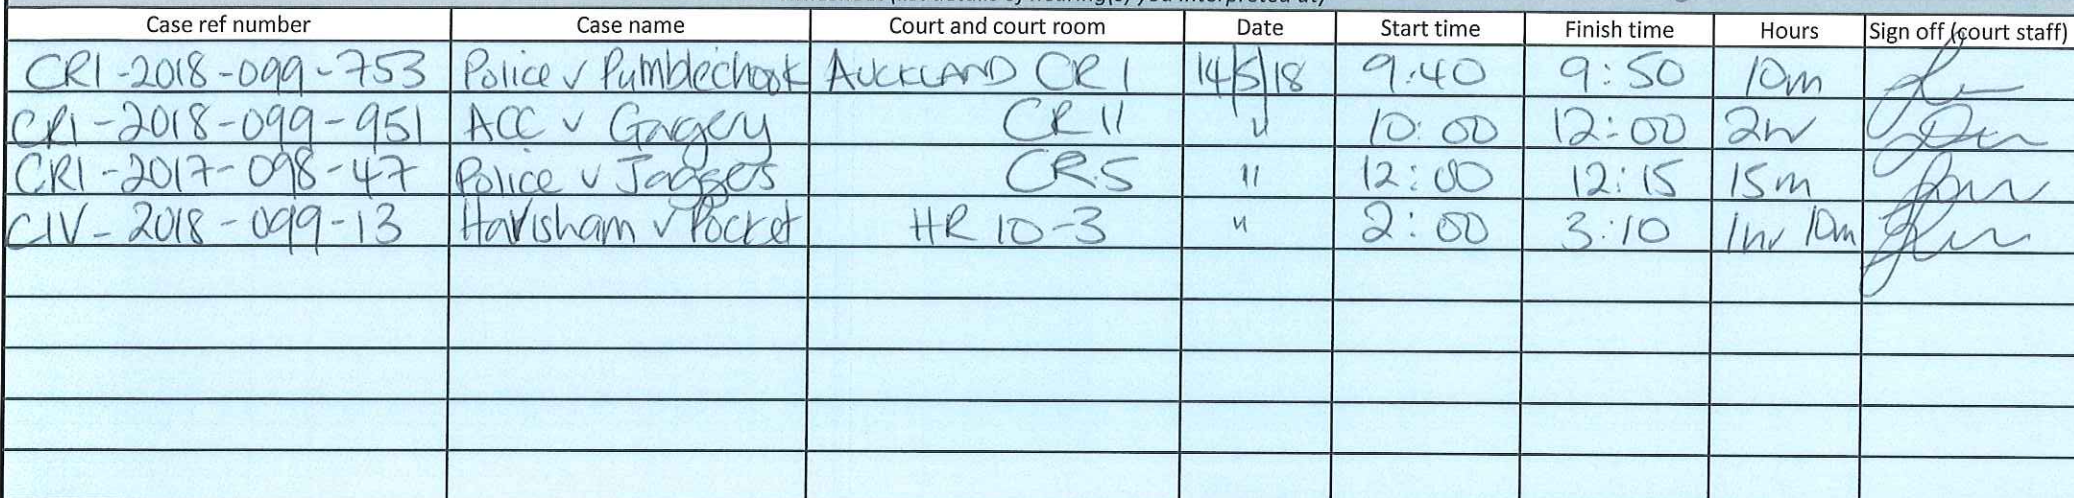 Case ref number Case name Court and court room Date Start time Finish time Hours Sign off (court staff)
CRI-2018-099-753 Police v Pumblechook AUCKLAND CR 1 14/5/18 9:40 9:50 10m
CRI-2018-099-951 ACC v Gagery CR 11 " 10:00 12:00 2hr
CRI-2017-098-47 Police v Jaggers CR.5 " 12:00 12:15 15m
CIV-2018-099-13 Havisham v Pocket HR 10-3 " 2:00 3:10 1hr 10m